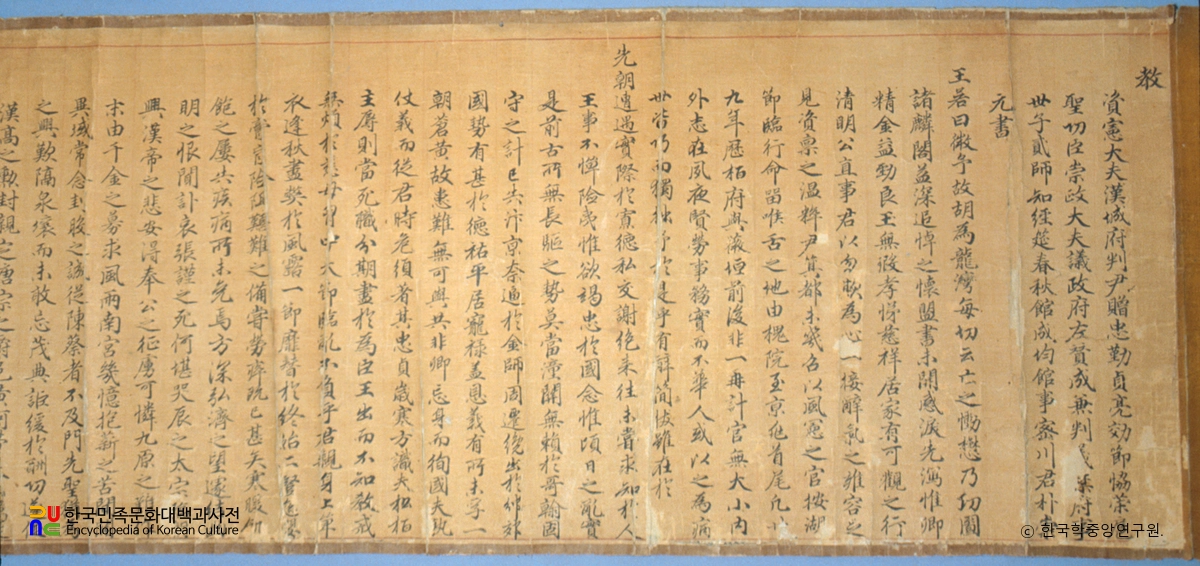 教
資憲大夫漢城府判尹贈忠勤貞亮効節協策
聖功臣崇政大夫議政府左贊成兼判義禁府事
世子貳師知經筵春秋館成均館事密川君朴
元書
王若曰徽予故胡為龍灣每切云亡之慟懋乃功圖
諸麟閣益深追悼之懷盟書未開感淚先濡惟卿
精金益勁良玉無瑕孝悌慈祥居家有可觀之行
清明公直事君以勿欺為心一接辭氣之雍容
見資稟之溫粹尹箕都未幾召以風憲之官按湖
節臨行命留喉舌之地由槐院至京兆首尾凡
九年歷栢府與薇垣前後非一再計官無大小內
外志在夙夜賢勞事務實而不華人或以之為病
世皆巧而獨拙予於是乎有取簡拔雖在於
先朝遭遇實際於寡德私交謝絕來往未嘗求知於人
王事不憚險夷惟欲竭忠於國念惟頃日之亂實
是前古所無長驅之勢莫當潼關無賴於哥翰國
守之計已失汴京奈逼於金師周遷繞出於
國勢有甚於德祐平居寵祿蓋恩義有所未孚
朝蒼黃故患難無可與共非卿忘身而徇國夫孰
仗義而從君時危須著其忠貞歲寒方識夫松栢
主辱則當死職分期盡於為臣王出而不知教戒
無煩於 不負乎君親身上單
衣逢秋盡獘於風露一節靡替於終始
於嘗 險阻艱難之備嘗勞
飽之屢失疾病所未免焉方深弘濟之望遽
明之恨聞訃哀張謹之死何堪哭辰之
興漢帝之悲安得奉公之征虜可憐九原之難
末由千金之募求風雨南宮幾憶抱薪之苦
異域常念封股之誠從陳蔡者不及門先聖
之興歎隔泉壤而未敢忘茂典詎緩於酬功
漢高之 封親之唐宗之
한국민족문화대백과사전
Encyclopedia of Korean Culture
© 한국학중앙연구원.